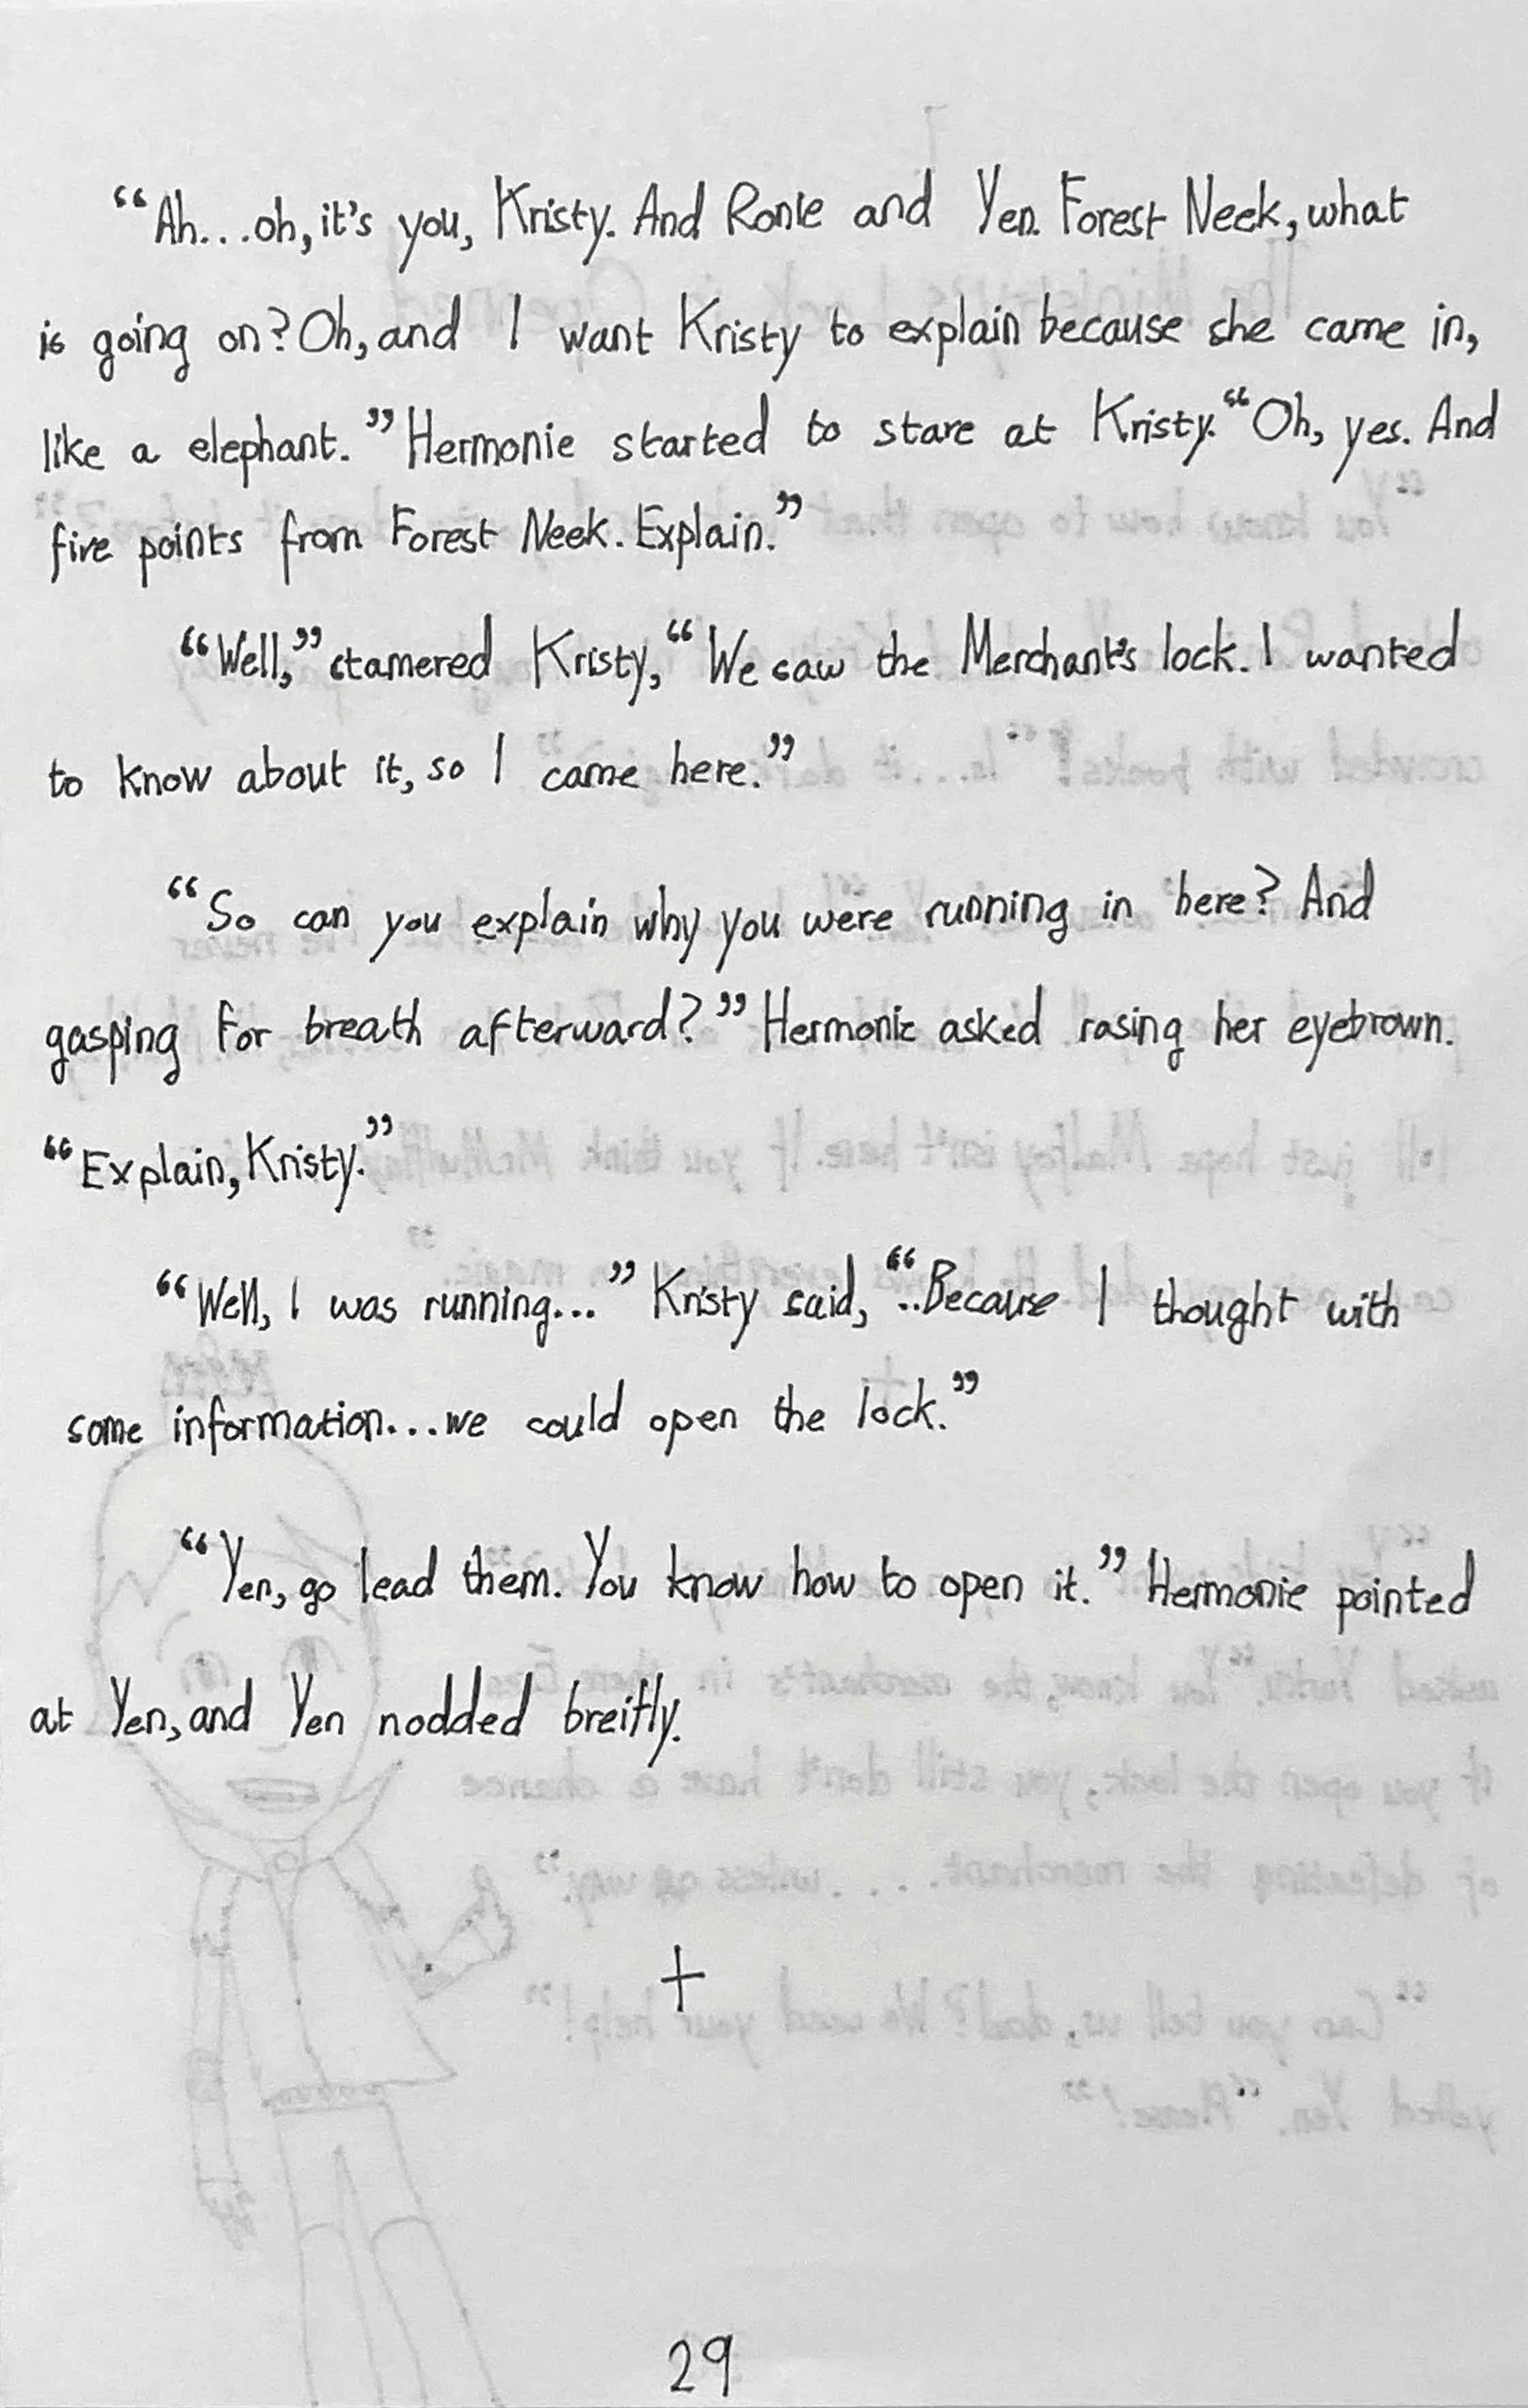 “Ah...oh, it's you, Kristy. And Ronie and Yen. Forest Neek, what
is going on? Oh, and I want Kristy to explain because she came in,
like a elephant.” Hermonie started to stare at Kristy. “Oh, yes. And
five points from Forest Neek. Explain.”
“Well,” stamered Kristy, “We saw the Merchant's lock. I wanted
to know about it, so I came here.”
“So can you explain why you were running in here? And
gasping for breath afterward?” Hermonie asked rasing her eyebrown.
“Explain, Kristy.”
“Well, I was running...” Kristy said, “..Because I thought with
some information...we could open the lock.”
“Yen, go lead them. You know how to open it.” Hermonie pointed
at Yen, and Yen nodded breifly.
+
29